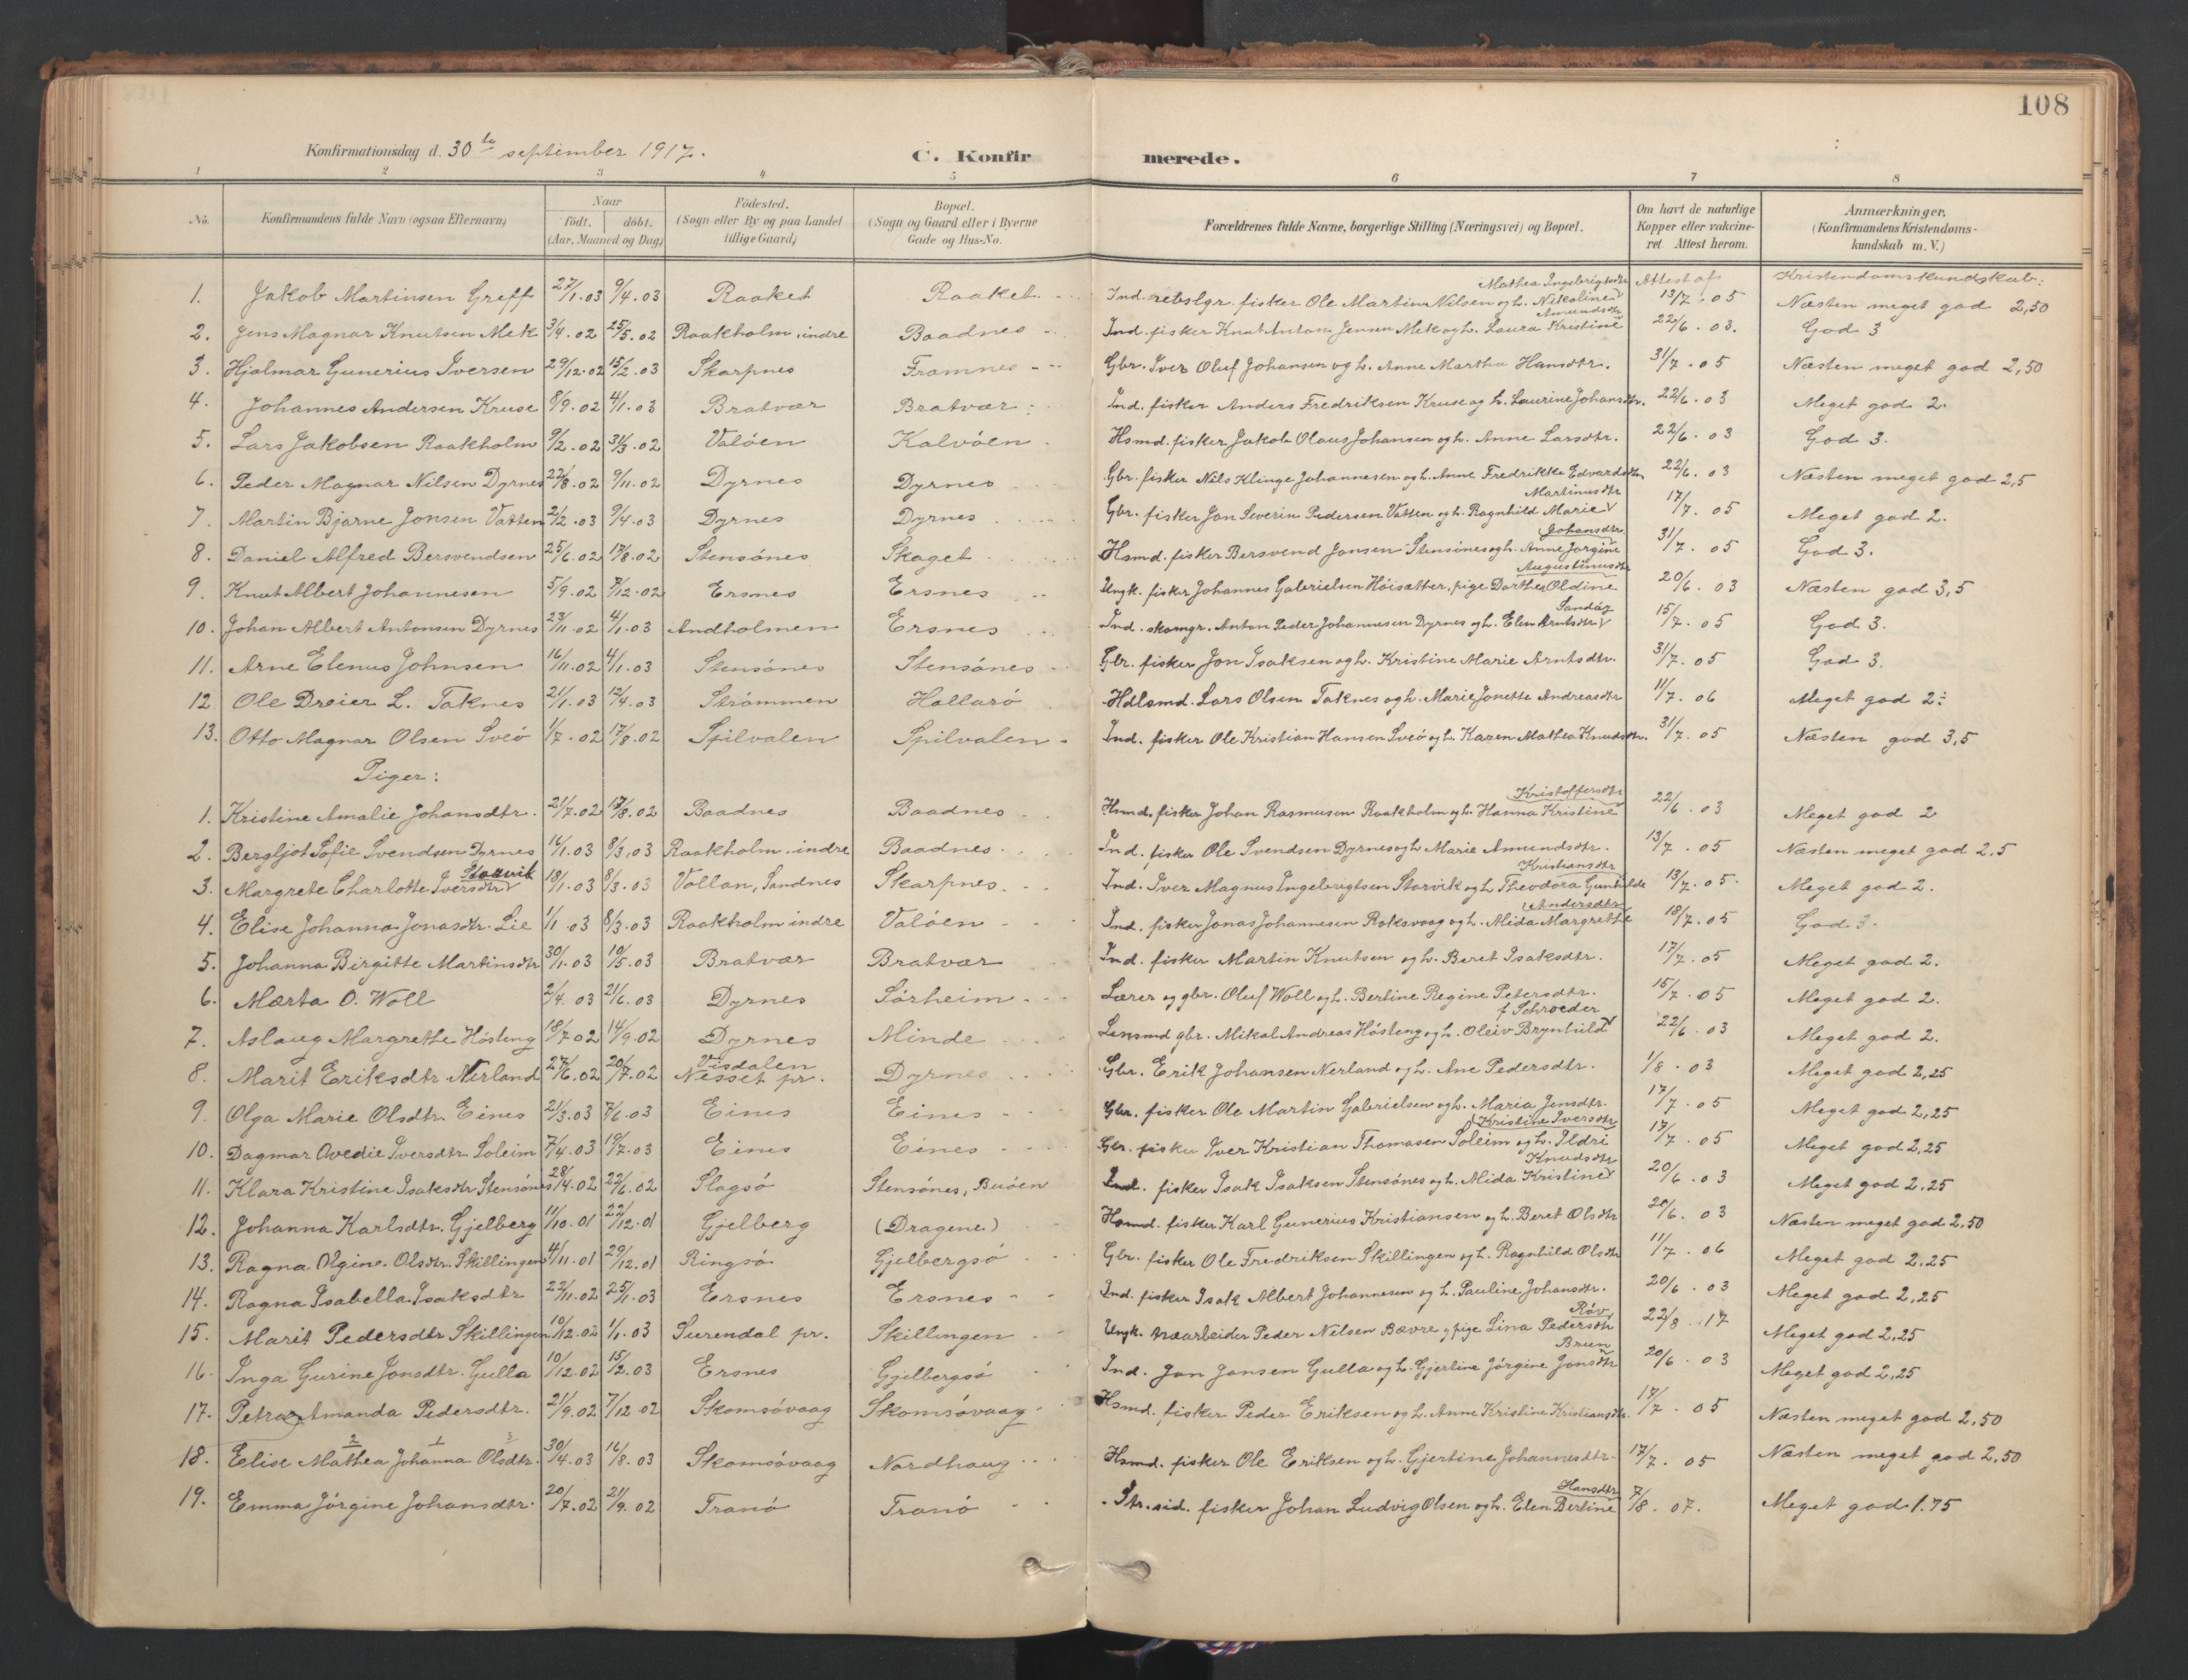 108
Konfirmationsdag d. 30te september 1917.
C. Konfirmerede.
1 2 3 4 5 6 7 8
No. Konfirmandens fulde Navn (ogsaa Efternavn) Naar födt. döbt. (Aar, Maaned og Dag) Födested. (Sogn eller By og paa Landet tillige Gaard) Bopæl. (Sogn og Gaard eller i Byerne Gade og Hus-No. Forældrenes fulde Navne, borgerlige Stilling (Næringsvei) og Bopæl. Om havt de naturlige Kopper eller vakcineret. Attest herom. Anmærkninger. (Konfirmandens Kristendomskundskab m. V.)
Attest af Kristendomskundskab:
1. Jakob Martinsen Greff 27/1.03 9/4.03 Raaket Raaket Ind. rebslgr. fisker Ole Martin Nilsen og h. Nikoline Mathea Ingebrigtsdtr 13/7.05 Næsten meget god 2,50
2. Jens Magnar Knutsen Mek 3/4.02 25/5.02 Raakholm, indre Baadnes Ind. fisker Knut Anton Jensen Mek og h. Laura Kristine Amundsdtr 22/6.03. God 3
3. Hjalmar Gunerius Iversen 29/12.02 15/2.03 Skarpnes Framnes Gbr. Iver Oluf Johansen og h. Anne Martha Hansdtr. 31/7.05 Næsten meget god 2,50
4. Johannes Andersen Kruse 8/9.02 4/1.03 Bratvær Bratvær Ind. fisker Anders Fredriksen Kruse og h. Laurine Johansdtr. 22/6.03 Meget god 2.
5. Lars Jakobsen Raakholm 9/2.02 31/3.02 Valöen Kalvöen Hsmd. fisker Jakob Olaus Johansen og h. Anne Larsdtr. 22/6.03 God 3.
6. Peder Magnar Nilsen Dyrnes 22/8.02 9/11.02 Dyrnes Dyrnes Gbr. fisker Nils Klinge Johannesen og h. Anne Fredrikke Edvardsdtr 22/6.03 Næsten meget god 2,5
7. Martin Bjarne Jonsen Vatten 2/2.03 9/4.03 Dyrnes Dyrnes Gbr. fisker Jon Severin Pedersen Vatten og h. Ragnhild Marie Martinusdtr 17/7.05 Meget god 2.
8. Daniel Alfred Bersvendsen 25/6.02 17/8.02 Stensönes Skaget Hsmd. fisker Bersvend Jonsen Stensönes og h. Anne Jorgine Johansdtr 31/7.05 God 3.
9. Knut Albert Johannesen 5/9.02 7/12.02 Ersnes Ersnes Ungk. fisker Johannes Gabrielsen Höisæther, pige Dorthea Oldine Augustinusdtr 20/6.03 Næsten god 3,5
10. Johan Albert Antonsen Dyrnes 23/11.02 4/1.03 Andholmen Ersnes Ind. skomgr. Anton Peder Johannesen Dyrnes og h. Elen Arntsdtr Sandög 15/7.05 God 3.
11. Arne Elenus Johnsen 16/11.02 4/1.03 Stensönes Stensönes Gbr. fisker Jon Isaksen og h. Kristine Marie Arntsdtr. 31/7.05 God 3.
12. Ole Dreier L. Taknes 21/1.03 12/4.03 Strömmen Hallarö Hdlsmd. Lars Olsen Taknes og h. Marie Jonette Andreasdtr 11/7.06 Meget god 2
13. Otto Magnar Olsen Sveö 1/7.02 17/8.02 Spilvalen Spilvalen Ind. fisker Ole Kristian Hansen Sveö og h. Karen Mathea Knudsdtr. 31/7.05 Næsten god 3,5
Piger:
1. Kristine Amalie Johansdtr. 21/7.02 17/8.02 Baadnes Baadnes Hsmd. fisker Johan Rasmusen Raakholm og h. Hanna Kristine Kristoffersdtr 22/6.03 Meget god 2
2. Bergljot Sofie Svendsen Dyrnes 16/1.03 8/3.03 Raakholm, indre Baadnes Ind. fisker Ole Svendsen Dyrnes og h. Marie Amundsdtr. 13/7.05 Næsten meget god 2,5
3. Margrete Charlotte Iversdtr Staurik 18/1.03 8/3.03 Vollan, Sandnes Skarpnes Ind. Iver Magnus Ingebrigtsen Storvik og h. Theodora Gunhilde Kristiansdtr 13/7.05 Meget god 2.
4. Elise Johanna Jonasdtr. Lie 1/1.03 8/3.03 Raakholm indre Valöen Ind. fisker Jonas Johannesen Roksvaag og h. Alida Margrethe Andersdtr 18/7.05 God 3.
5. Johanna Birgitte Martinsdtr 30/1.03 10/5.03 Bratvær Bratvær Ind. fisker Martin Knutsen og h. Beret Isaksdtr. 17/7.05 Meget god 2.
6. Mærta O. Woll 2/4.03 21/6.03 Dyrnes Sörheim Lærer og gbr. Oluf Woll og h. Bertine Regine Petersdtr. 15/7.05 Meget god 2.
7. Aslaug Margrethe Hösteng 18/7.02 14/9.02 Dyrnes Minde Lensmd gbr. Mikal Andreas Hösteng og h. Oleiv Brynhild f Schroeder 22/6.03 Meget god 2.
8. Marit Eriksdtr Nerland 27/6.02 20/7.02 Visdalen Nesset pr. Dyrnes Gbr. Erik Johansen Nerland og h. Ane Pedersdtr. 1/8.03 Meget god 2,25
9. Olga Marie Olsdtr. Eines 21/3.03 7/6.03 Eines Eines Gbr. fisker Ole Martin Gabrielsen og h. Maria Jensdtr. 17/7.05 Meget god 2,25
10. Dagmar Ovedie Iversdtr. Soleim 7/4.03 19/7.03 Eines Eines Gbr. fisker Iver Kristian Thomasen Soleim og h. Ildri Kristine Iversdtr 17/7.05 Meget god 2,25
11. Klara Kristine Isaksdtr Stensönes 28/4.02 22/6.02 Slagsö Stensönes, Buöen Ind. fisker Isak Isaksen Stensönes og h. Alida Kristine Knudsdtr 20/6.03 Meget god 2,25
12. Johanna Karlsdtr. Gjelberg 11/10.01 22/12.01 Gjelberg (Dragene) Hsmd. fisker Karl Gunerius Kristiansen og h. Beret Olsdtr 20/6.03 Næsten meget god 2,50
13. Ragna Olgine Olsdtr. Skillingen 4/11.01 29/12.01 Ringsö Gjelbergsö Gbr. fisker Ole Fredriksen Skillingen og h. Ragnhild Olsdtr 11/7.06 Meget god 2,25
14. Ragna Isabella Isaksdtr 22/11.02 25/1.03 Ersnes Ersnes Ind. fisker Isak Albert Johannesen og h. Pauline Johansdtr. 20/6.03 Meget god 2,25
15. Marit Pedersdtr Skillingen 10/12.02 1/1.03 Surendal pr. Skillingen Ungk. Peder Nilsen Bævre, pige Lina Pedersdtr Röv 22/8.17 Meget god 2,25
16. Inga Gurine Jonsdtr. Gulla 10/12.02 15/2.03 Ersnes Gjelbergsö Ind. Jon Jonsen Gulla og h. Gjertine Jörgine Jonsdtr Brun 20/6.03 Meget god 2,25
17. Petra Amanda Pedersdtr. 21/9.02 7/12.02 Skomsövaag Skomsövaag Hsmd. fisker Peder Eriksen og h. Anne Kristine Kristiansdtr. 17/7.05 Næsten meget god 2,50
2 1 3
18. Elise Mathea Johanna Olsdtr. 30/4.03 16/8.03 Skomsövaag Nordhaug Hsmd. fisker Ole Eriksen og h. Gjertine Johannesdtr. 17/7.05 Næsten meget god 2,50
19. Emma Jörgine Johansdtr. 20/7.02 21/9.02 Tranö Tranö Str.sid. fisker Johan Ludvig Olsen og h. Elen Bertine Hansdtr 7/8.07. Meget god 1.75